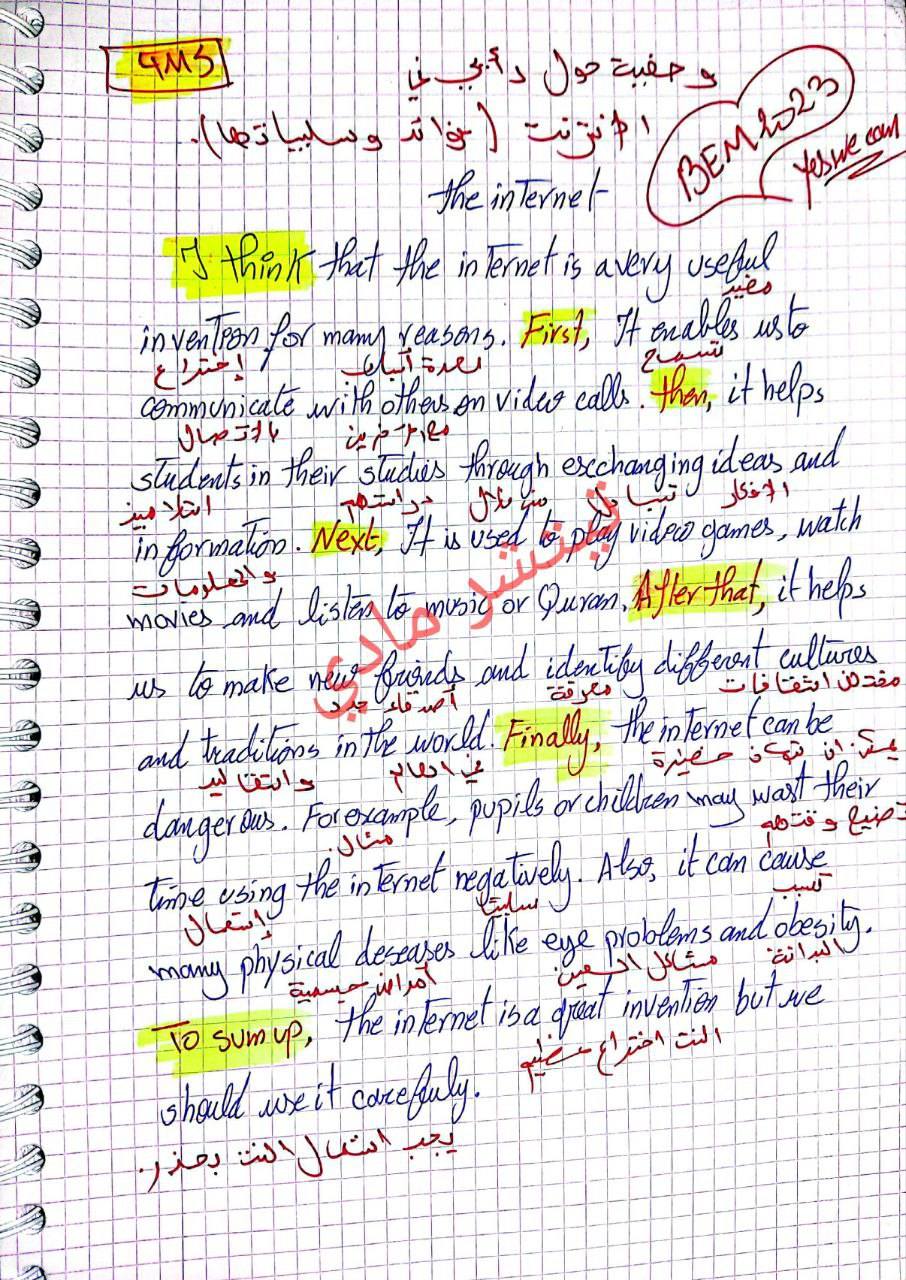 4MS
وضعية حول رأيي في
الانترنت (فوائد وسلبياتها).
BEM 2023
Yes we can
the internet
I think that the internet is a very useful
مفيد
invention for many reasons. First, It enables us to
إختراع لعدة أسباب تسمح
communicate with others on video calls. then, it helps
بالاتصال مع الآخرين
students in their studies through exchanging ideas and
التلاميذ دراستهم من خلال تبادل الافكار
information. Next, It is used to play video games, watch
والمعلومات
movies and listen to music or Quran. After that, it helps
us to make new friends and identify different cultures
أصدقاء جدد معرفة مختلف الثقافات
and traditions in the world. Finally, the internet can be
والتقاليد في العالم يمكن ان تكون خطيرة
dangerous. For example, pupils or children may wast their
مثال. تضييع وقتهم
time using the internet negatively. Also, it can cause
إستعمال سلبيا تسبب
many physical deseases like eye problems and obesity.
أمراض جسمية مشاكل العين البدانة
To sum up, the internet is a great invention but we
النت اختراع عظيم
should use it carefuly.
يجب استعمال النت بحذر.